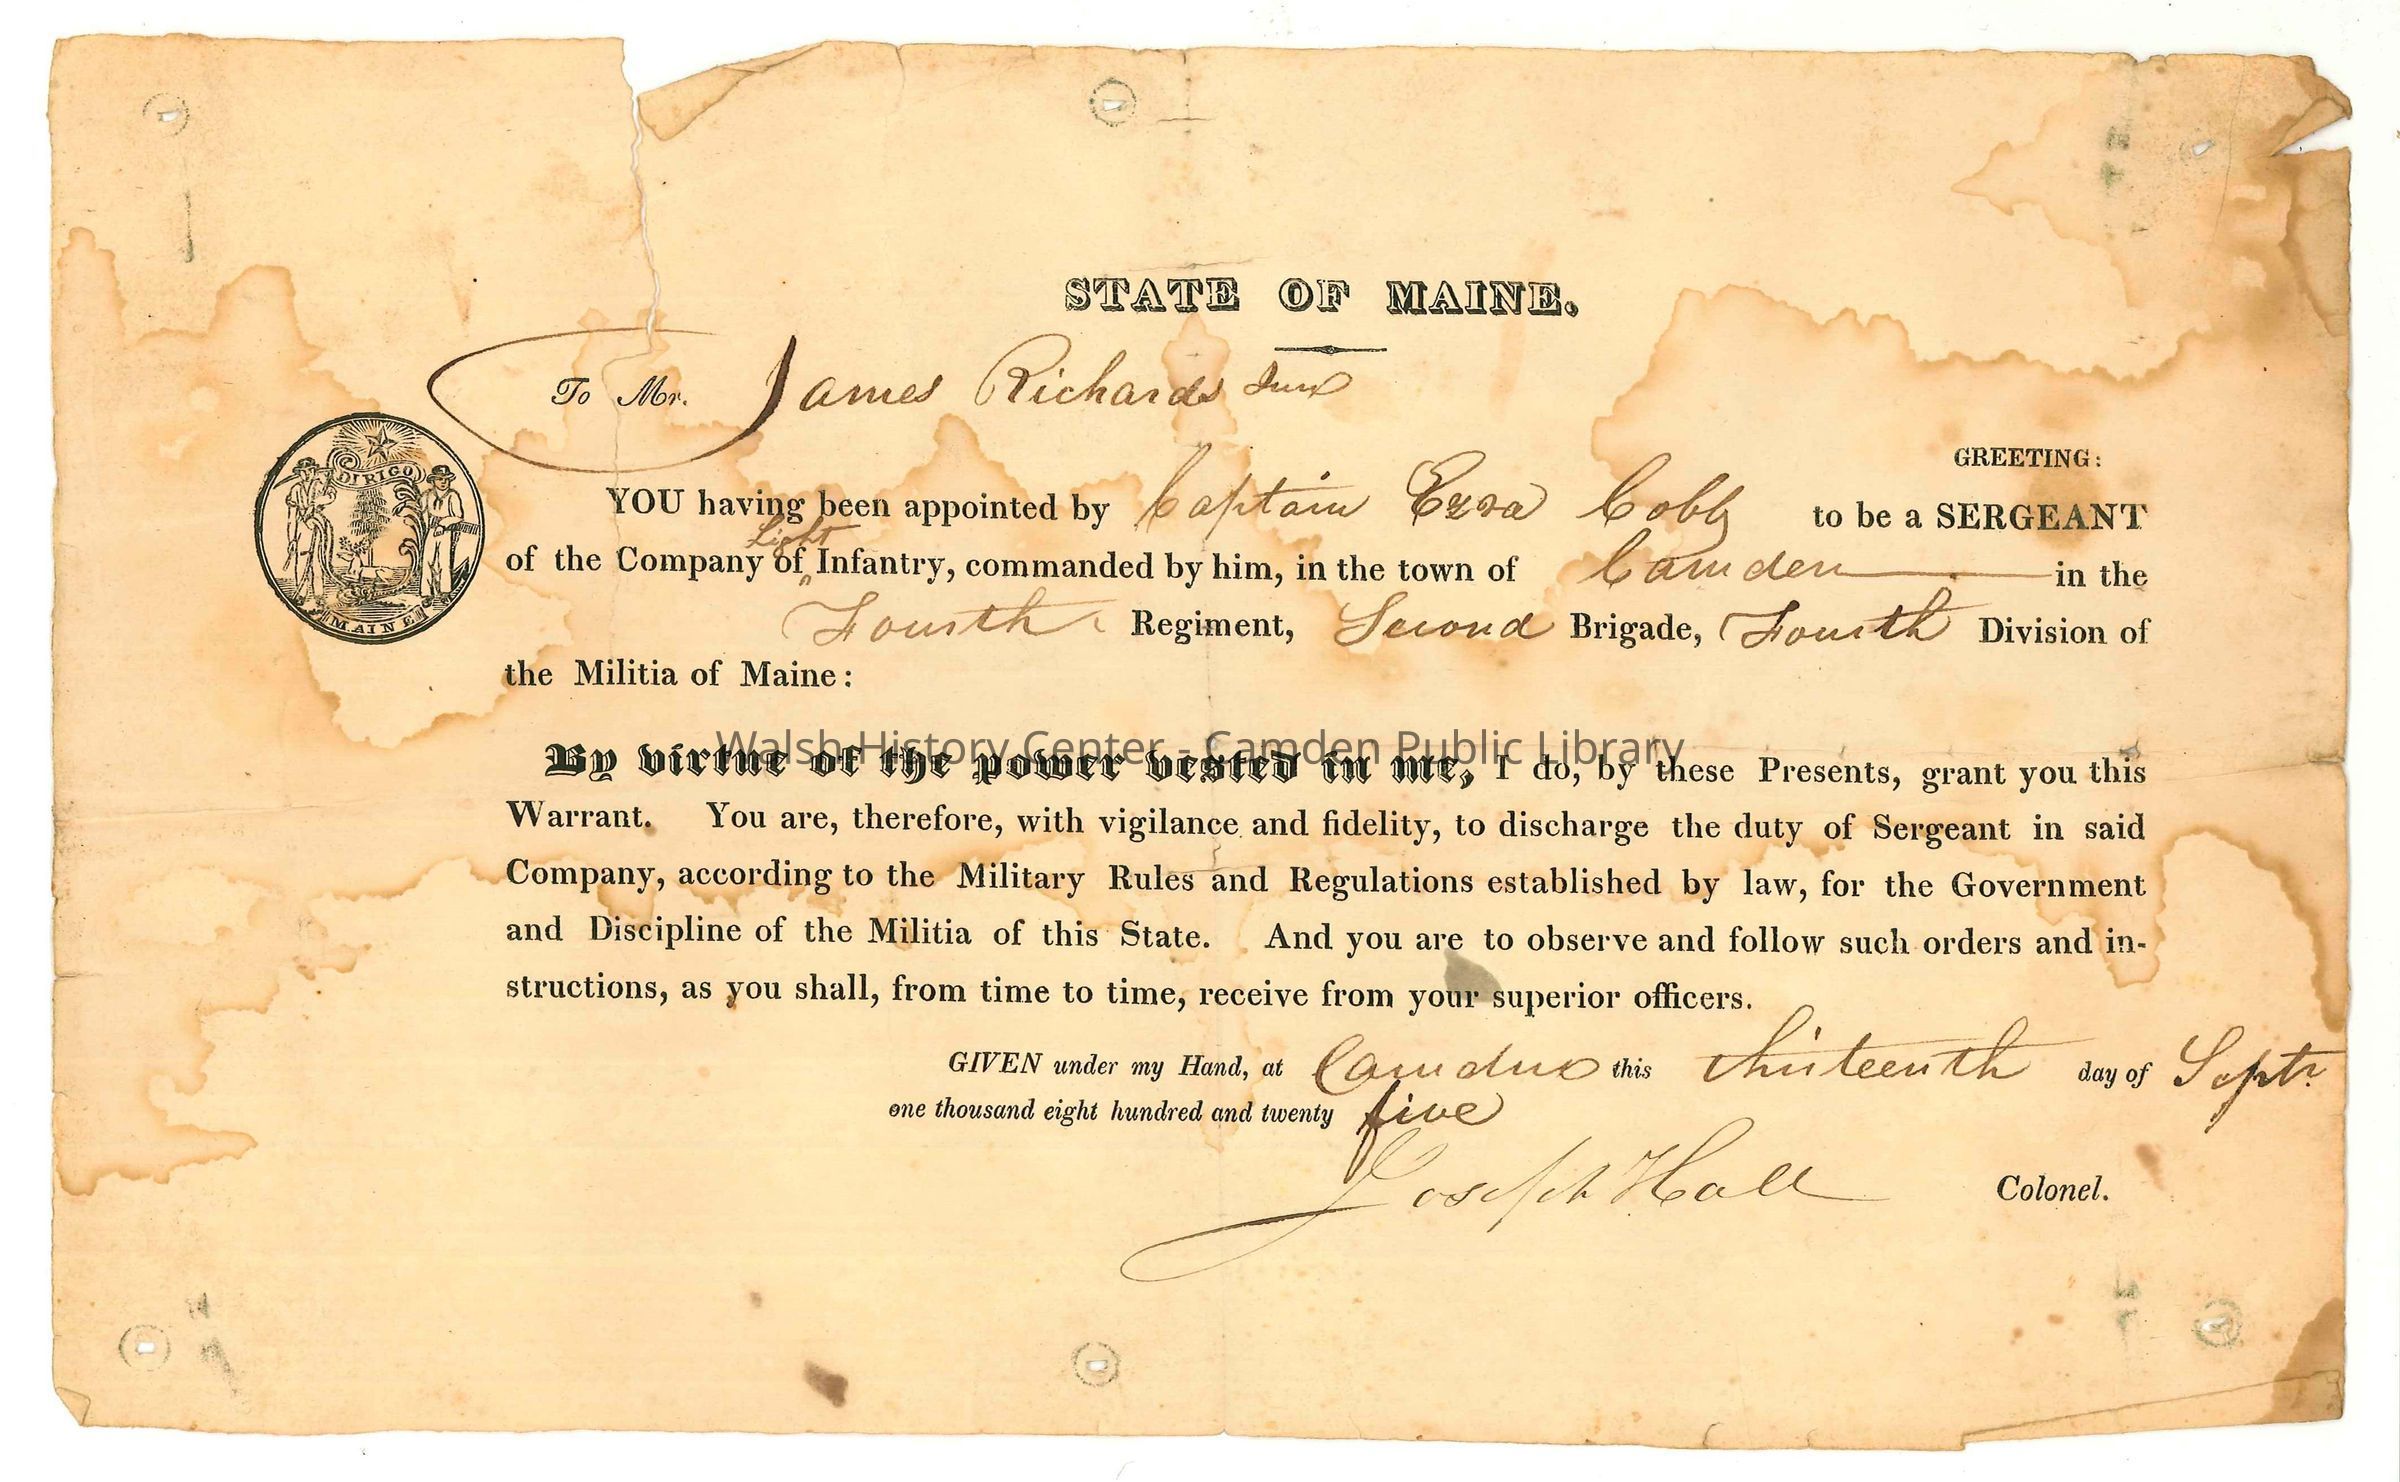 STATE OF MAINE.
To Mr. James Richards Junr
GREETING:
DIRIGO
MAINE
YOU having been appointed by Captain Ezra Cobb to be a SERGEANT
Light
of the Company of ^ Infantry, commanded by him, in the town of Camden in the
Fourth Regiment, Second Brigade, Fourth Division of
the Militia of Maine:
Walsh History Center - Camden Public Library
By virtue of the power vested in me, I do, by these Presents, grant you this
Warrant. You are, therefore, with vigilance and fidelity, to discharge the duty of Sergeant in said
Company, according to the Military Rules and Regulations established by law, for the Government
and Discipline of the Militia of this State. And you are to observe and follow such orders and in-
structions, as you shall, from time to time, receive from your superior officers.
GIVEN under my Hand, at Camden this thirteenth day of Septr.
one thousand eight hundred and twenty five
Joseph Hall Colonel.